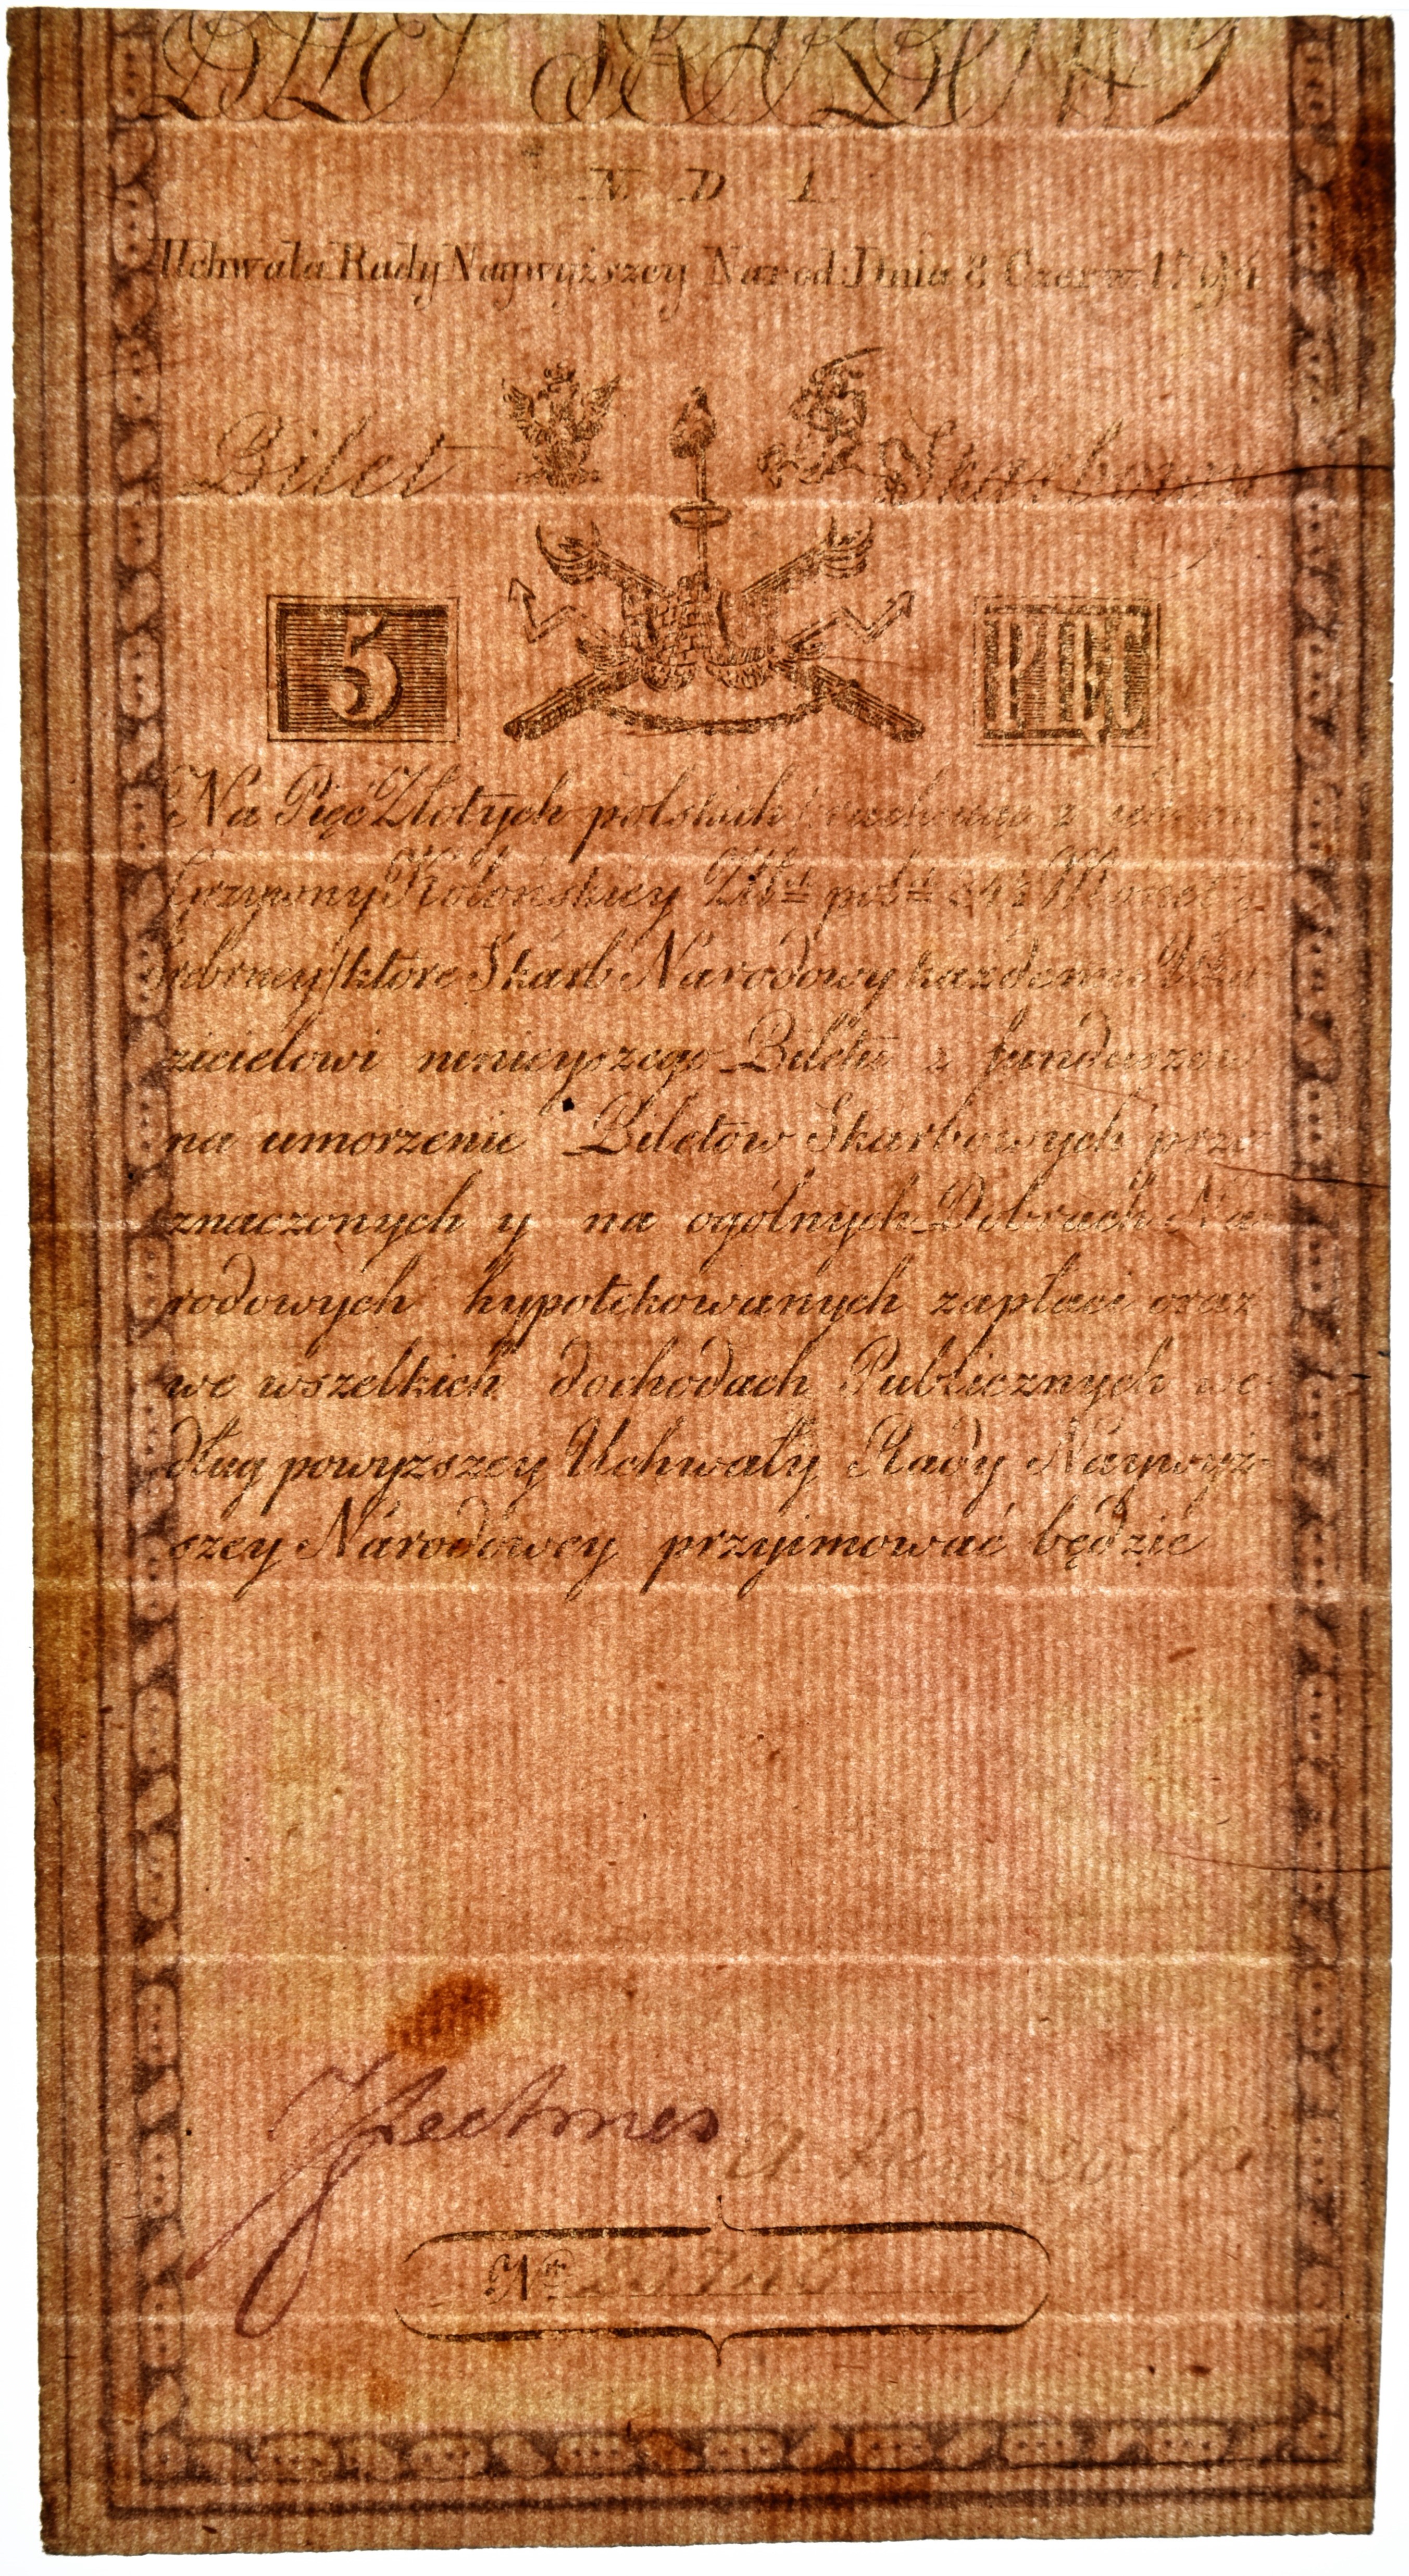 BILET SKARBOWY
N D 1
Uchwała Rady Naywyższey Narod: Dnia 8 Czerw: 1794
Bilet Skarbowy
5 PIĘĆ
Na Pięć Złotych polskich rachując z iedney
Grzywny Kolońskiey Zł: pol: 84½ Monety
srebrney/ktore Skarb Narodowy każdemu Oka-
zicielowi ninieyszego Biletu z funduszów
na umorzenie Biletow Skarbowych prze-
znaczonych y na ogólnych Dobrach Na-
rodowych hypotekowanych zapłaci oraz
we wszelkich dochodach Publicznych we-
dług powyższey Uchwały Rady Naywyż-
szey Národowey przyjmować będzie
Nro